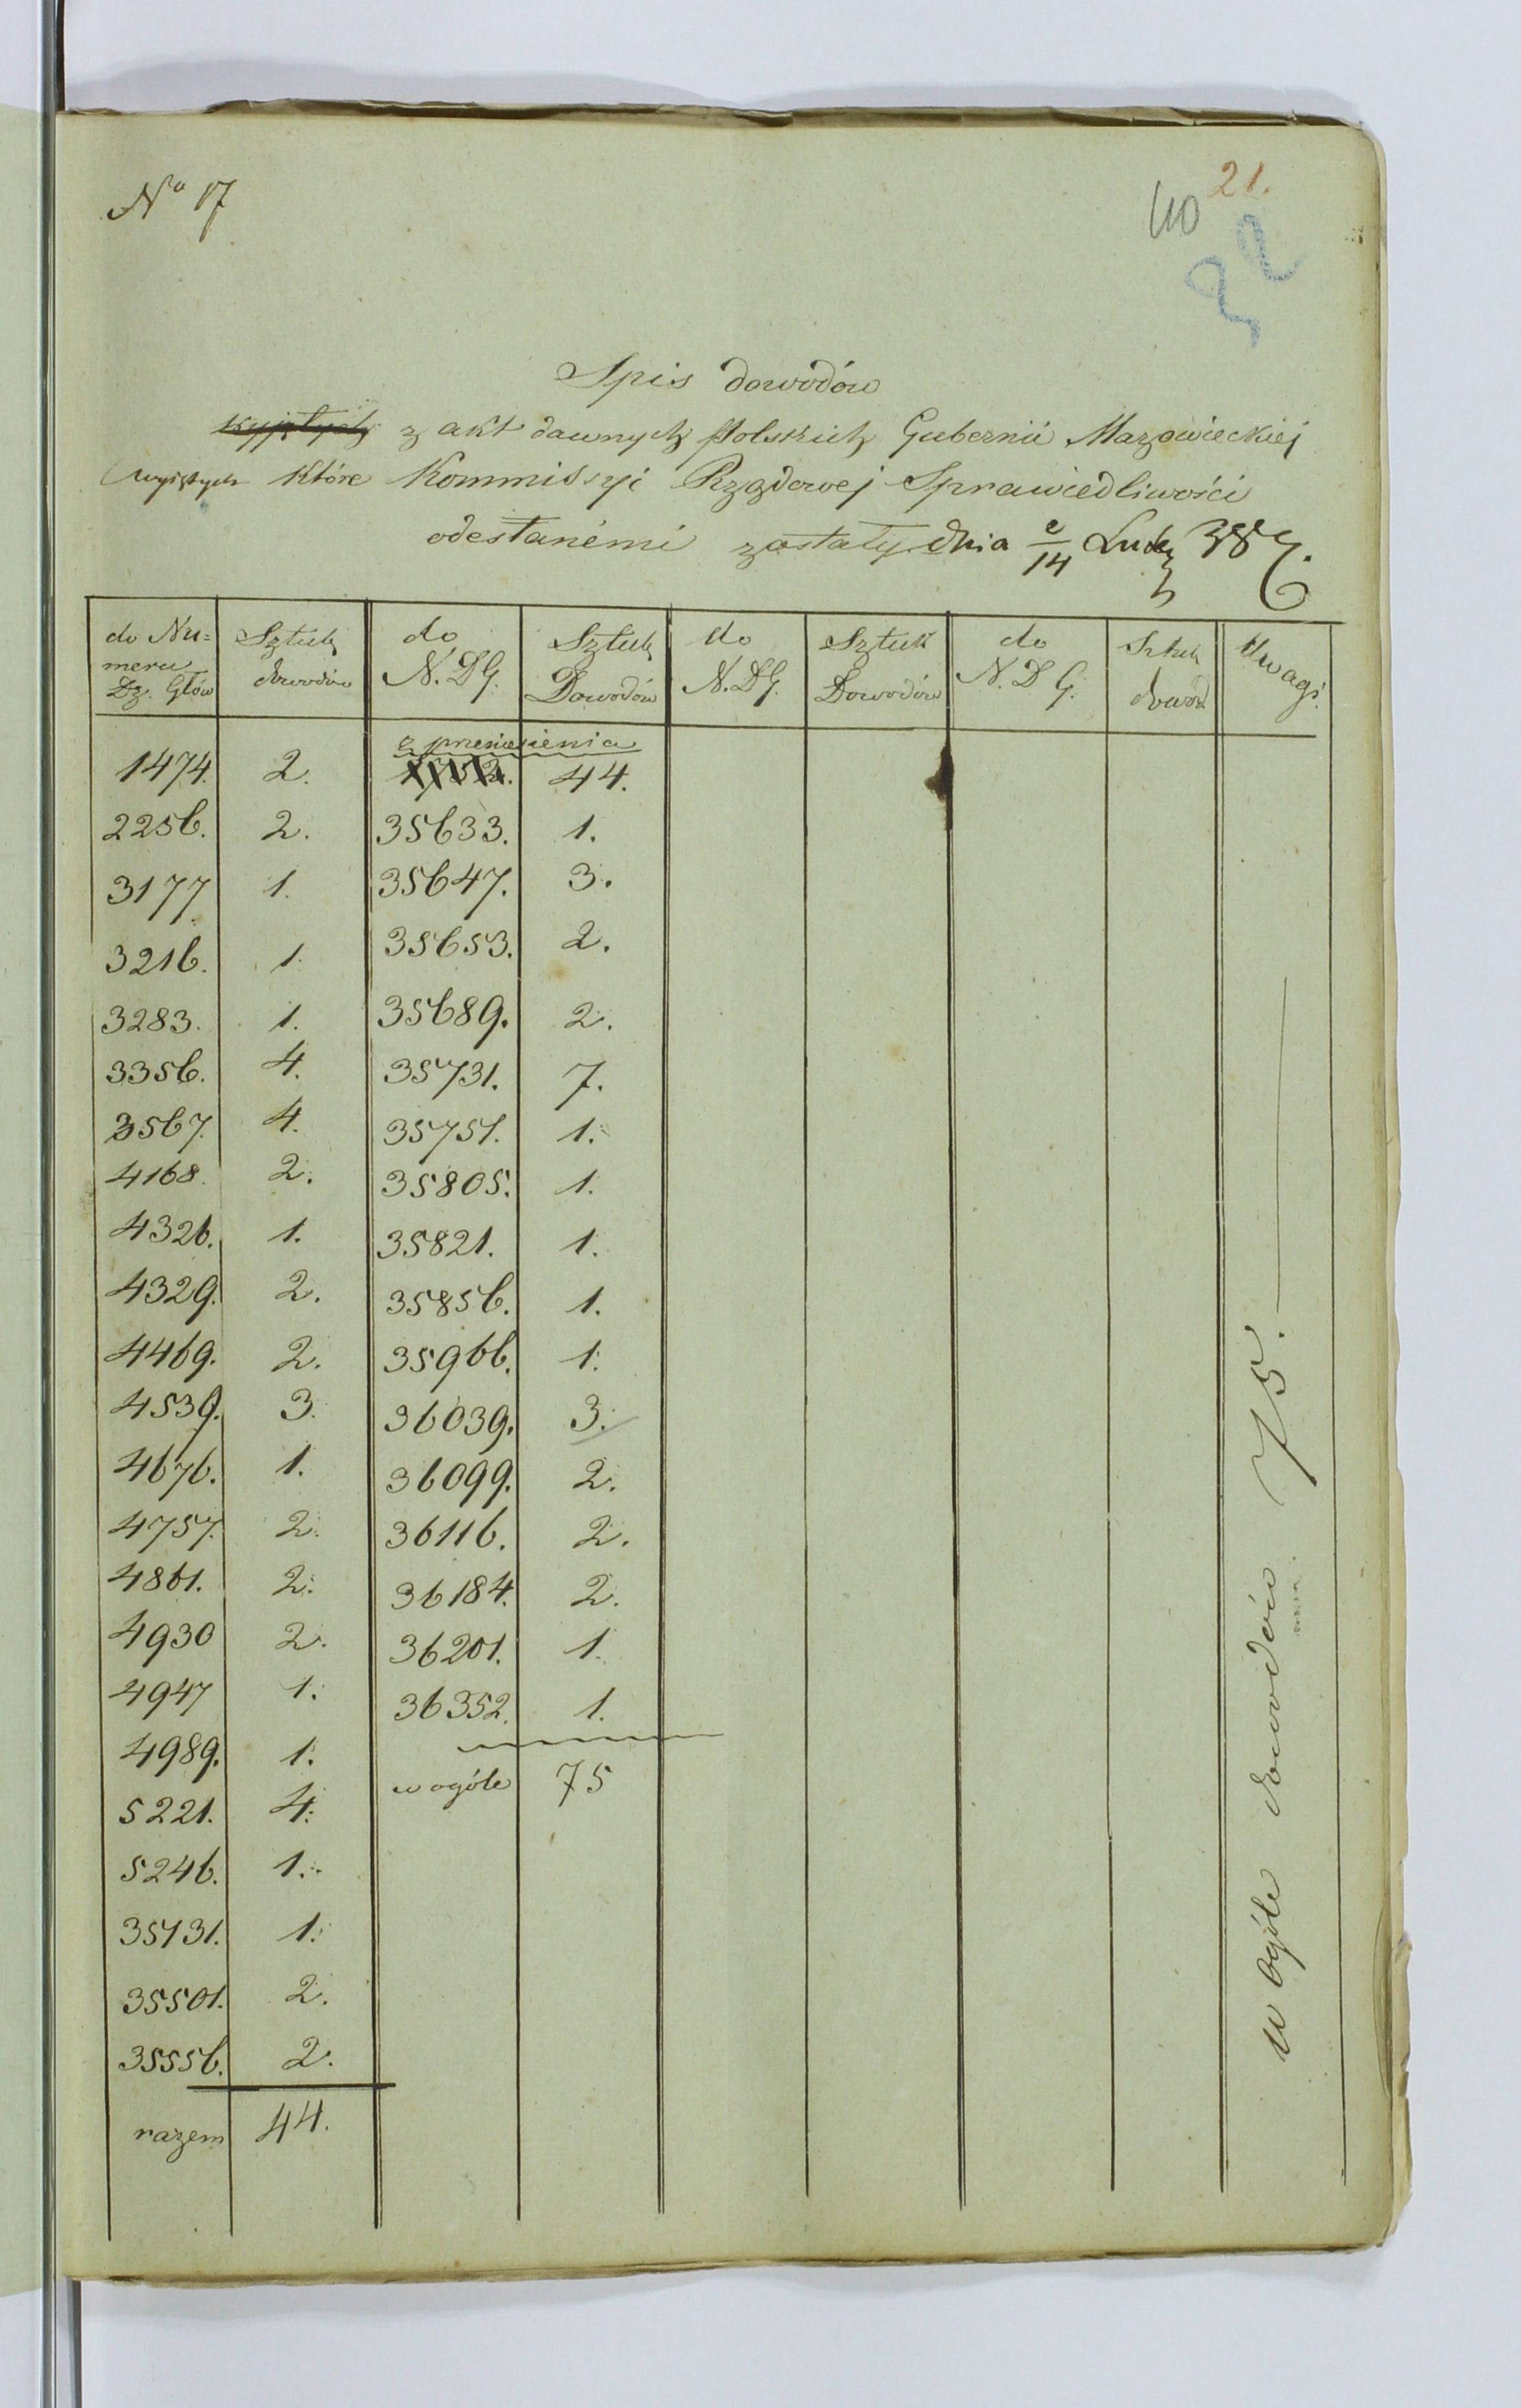 No 17
21.
40
22
Spis dowodów
wyjętych z akt dawnych Polskich Gubernii Mazowieckiej
wyjętych które Kommissyi Rządowej Sprawiedliwości
odesłanémi zostały dnia 2/14 Lute 387.
do Nu= Sztuk do Sztuk do Sztuk do Sztuk Uwagi.
meru dowodów N. DG. Dowodów N. DG. Dowodów N. D G. dowod
Dz. Głów
z przeniesienia
1474. 2. 44.
2256. 2. 35633. 1.
3177. 1. 35647. 3.
3216. 1. 35653. 2.
3283. 1. 35689. 2.
3356. 4. 35731. 7.
3567. 4. 35751. 1.
4168. 2. 35805. 1.
4326. 1. 35821. 1.
4329. 2. 35856. 1.
4469. 2. 35966. 1.
4539. 3. 36039. 3.
4676. 1. 36099. 2.
4757. 2. 36116. 2.
4861. 2. 36184. 2.
4930 2. 36201. 1.
4947 1. 36352. 1.
4989. 1. w ogóle 75
5221. 4.
5246. 1.
35431. 1.
35501. 2.
35556. 2.
razem 44.
w ogóle dowodów 75.